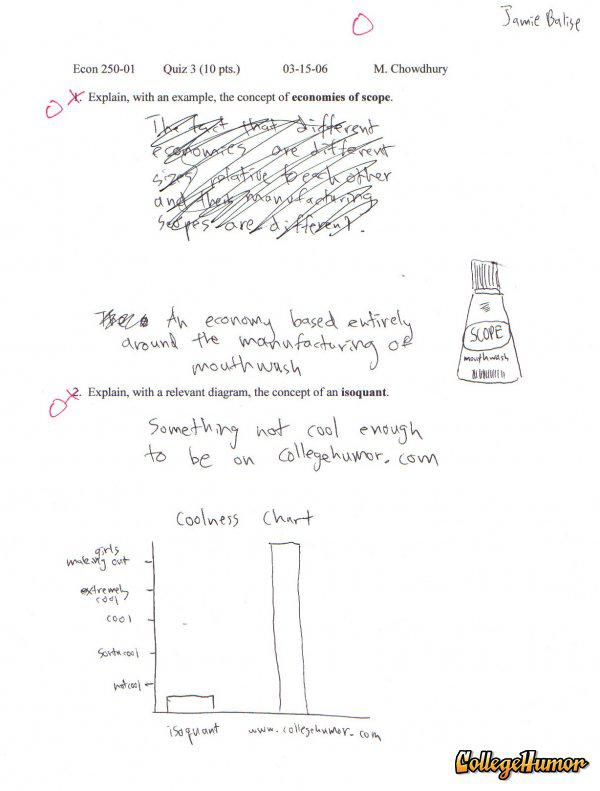 0
Jamie Balise
Econ 250-01 Quiz 3 (10 pts.) 03-15-06 M. Chowdhury
0 1. Explain, with an example, the concept of economies of scope.
The fact that different
economies are different
sizes relative to each other
and their manufacturing
scopes are different.
An economy based entirely
around the manufacturing of
mouthwash
SCOPE
mouthwash
0 2. Explain, with a relevant diagram, the concept of an isoquant.
Something not cool enough
to be on collegehumor.com
Coolness Chart
girls
making out
extremely
cool
cool
sorta cool
not cool
isoquant www.collegehumor.com
CollegeHumor